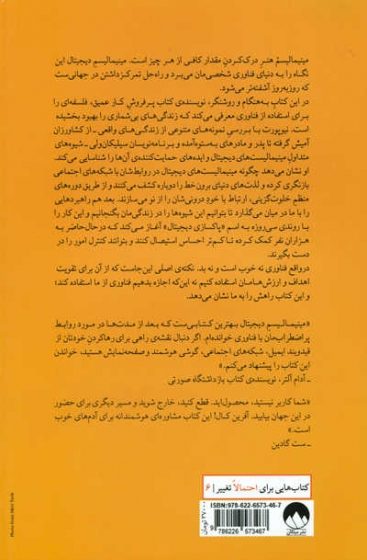 مینیمالیسم هنرِ درک‌کردنِ مقدار کافی از هر چیز است. مینیمالیسم دیجیتال این
نگاه را به دنیای فناوری شخصی‌مان می‌برد و راه‌حل تمرکزداشتن در جهانی‌ست
که روزبه‌روز آشفته‌تر می‌شود.
در این کتابِ به‌هنگام و روشنگر، نویسنده‌ی کتاب پرفروش کار عمیق، فلسفه‌ای را
برای استفاده از فناوری معرفی می‌کند که زندگی‌های بی‌شماری را بهبود بخشیده
است. نیوپورت با بررسی نمونه‌های متنوعی از زندگی‌های واقعی ـ از کشاورزان
آمیش گرفته تا پدر و مادرهای به‌ستوه‌آمده و برنامه‌نویسان سیلیکان‌ولی ـ شیوه‌های
متداولِ مینیمالیست‌های دیجیتال و ایده‌های حمایت‌کننده‌ی آن‌ها را شناسایی می‌کند.
او نشان می‌دهد چگونه مینیمالیست‌های دیجیتال در روابط‌شان با شبکه‌های اجتماعی
بازنگری کرده و لذت‌های دنیای برون‌خط را دوباره کشف می‌کنند و از طریق دوره‌های
منظم خلوت‌گزینی، ارتباط با خودِ درونی‌شان را از نو می‌سازند. بعد هم راهبردهایی
را با ما در میان می‌گذارد تا بتوانیم این شیوه‌ها را در زندگی‌مان بگنجانیم و این کار را
با روندی سی‌روزه به اسم «پاکسازی دیجیتال» آغاز می‌کند که درحال‌حاضر به
هزاران نفر کمک کرده تا کم‌تر احساس استیصال کنند و بتوانند کنترل امور را در
دست بگیرند.
درواقع فناوری نه خوب است و نه بد. نکته‌ی اصلی این‌جاست که از آن برای تقویت
اهداف و ارزش‌هامان استفاده کنیم نه این‌که اجازه بدهیم فناوری از ما استفاده کند؛
و این کتاب راهش را به ما نشان می‌دهد.
«مینیمالیسم دیجیتال بهترین کتابی‌ست که بعد از مدت‌ها در مورد روابط
پراضطراب‌مان با فناوری خوانده‌ام. اگر دنبال نقشه‌ی راهی برای رهاکردن خودتان از
قیدوبند ایمیل، شبکه‌های اجتماعی، گوشی هوشمند و صفحه‌نمایش هستید، خواندن
این کتاب را پیشنهاد می‌کنم.»
ـ آدام آلتر، نویسنده‌ی کتاب بازداشتگاه صورتی
«شما کاربر نیستید، محصول‌اید. قطع کنید، خارج شوید و مسیر دیگری برای حضور
در این جهان بیابید. آفرین کال! این کتاب مشاوره‌ای هوشمندانه برای آدم‌های خوب
است.»
ـ ست گادین
کتاب‌هایی برای احتمالاً تغییر | ۶
ISBN: 978-622-6573-46-7
9 786226 573467
۳۷۰۰۰ تومان